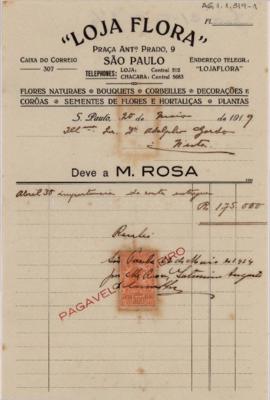 AG.1.1.819-1
"LOJA FLORA"
Fl.
PRAÇA ANTº PRADO, 9
CAIXA DO CORREIO
307
SÃO PAULO
ENDEREÇO TELEGR.:
"LOJAFLORA"
TELEPHONES:
LOJA: Central 512
CHACARA: Central 5663
FLORES NATURAES • BOUQUETS • CORBEILLES • DECORAÇÕES E
CORÔAS • SEMENTES DE FLORES E HORTALIÇAS • PLANTAS
S. Paulo, 20 de Maio de 1919
Snr. Dr. Adolpho Gordo
Nesta
Deve a M. ROSA
Abril 30 importancia de conta entregue
Rs. 175.000
Recebi
São Paulo de Maio de
PAGAVEL